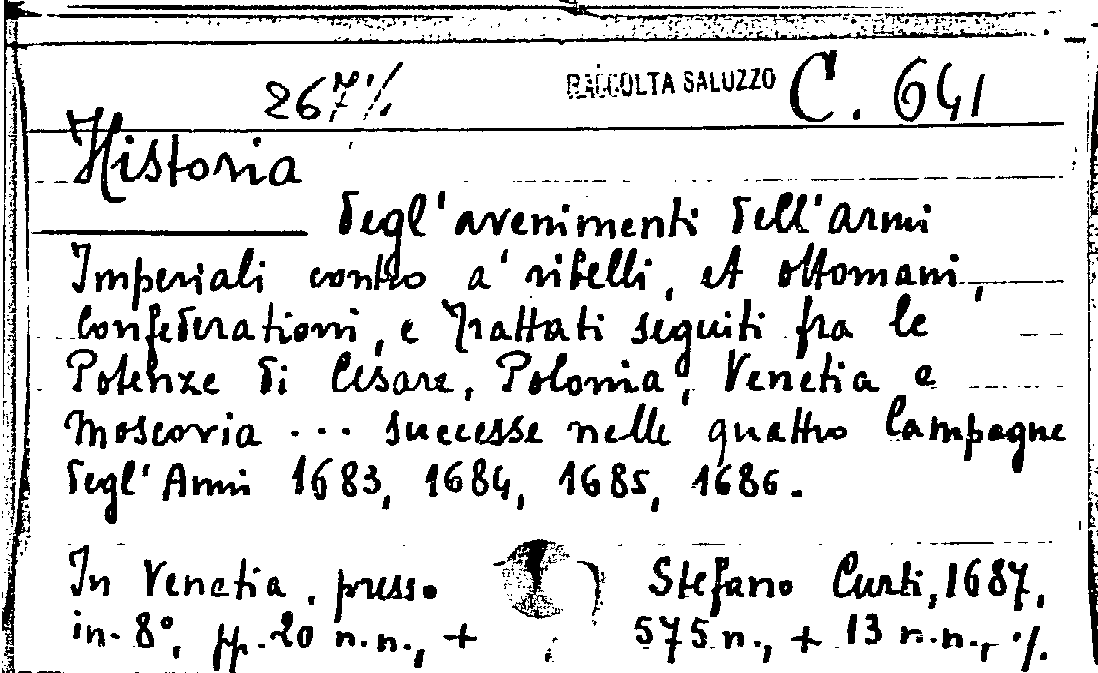 267 ./. RACCOLTA SALUZZO C. 641
Historia
degl'avenimenti dell'armi
Imperiali contro a' ribelli, et ottomani,
Confederationi, e Trattati seguiti fra le
Potenze di Cesare, Polonia, Venetia e
Moscovia ... successe nelle quattro Campagne
degl'Anni 1683, 1684, 1685, 1686.
In Venetia, presso Stefano Curti, 1687,
in-8°, pp. 20 n.n., + 575 n., + 13 n.n., ./.